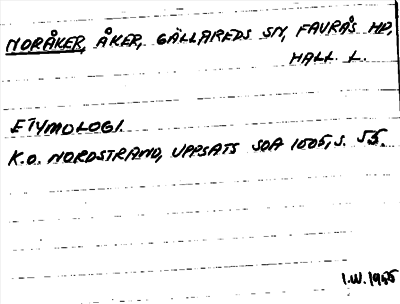 NORÅKER, ÅKER, GÄLLAREDS SN, FAURÅS HD,
HALL. L.
ETYMOLOGI.
K.O. NORDSTRAND, UPPSATS SOA 1005, S. 55.
I.W. 1955